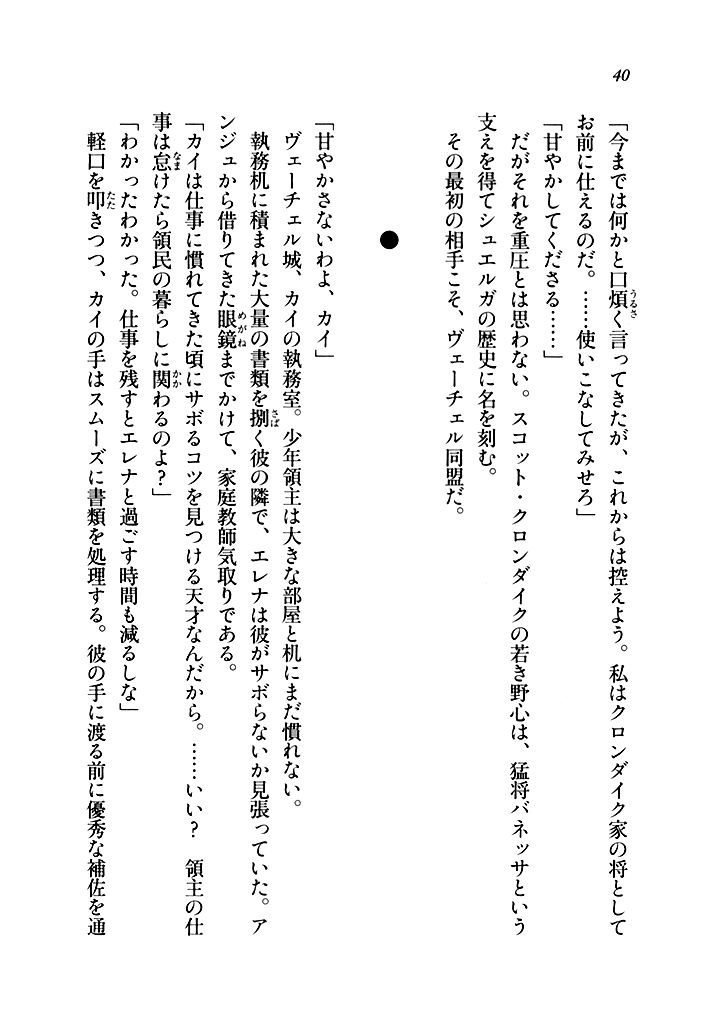 40
「今までは何かと口煩く言ってきたが、これからは控えよう。私はクロンダイク家の将として
お前に仕えるのだ。……使いこなしてみせろ」
「甘やかしてくださる……」
だがそれを重圧とは思わない。スコット・クロンダイクの若き野心は、猛将バネッサという
支えを得てシュエルガの歴史に名を刻む。
その最初の相手こそ、ヴェーチェル同盟だ。
●
「甘やかさないわよ、カイ」
ヴェーチェル城、カイの執務室。少年領主は大きな部屋と机にまだ慣れない。
執務机に積まれた大量の書類を捌く彼の隣で、エレナは彼がサボらないか見張っていた。ア
ンジュから借りてきた眼鏡までかけて、家庭教師気取りである。
「カイは仕事に慣れてきた頃にサボるコツを見つける天才なんだから。……いい？　領主の仕
事は怠けたら領民の暮らしに関わるのよ？」
「わかったわかった。仕事を残すとエレナと過ごす時間も減るしな」
軽口を叩きつつ、カイの手はスムーズに書類を処理する。彼の手に渡る前に優秀な補佐を通